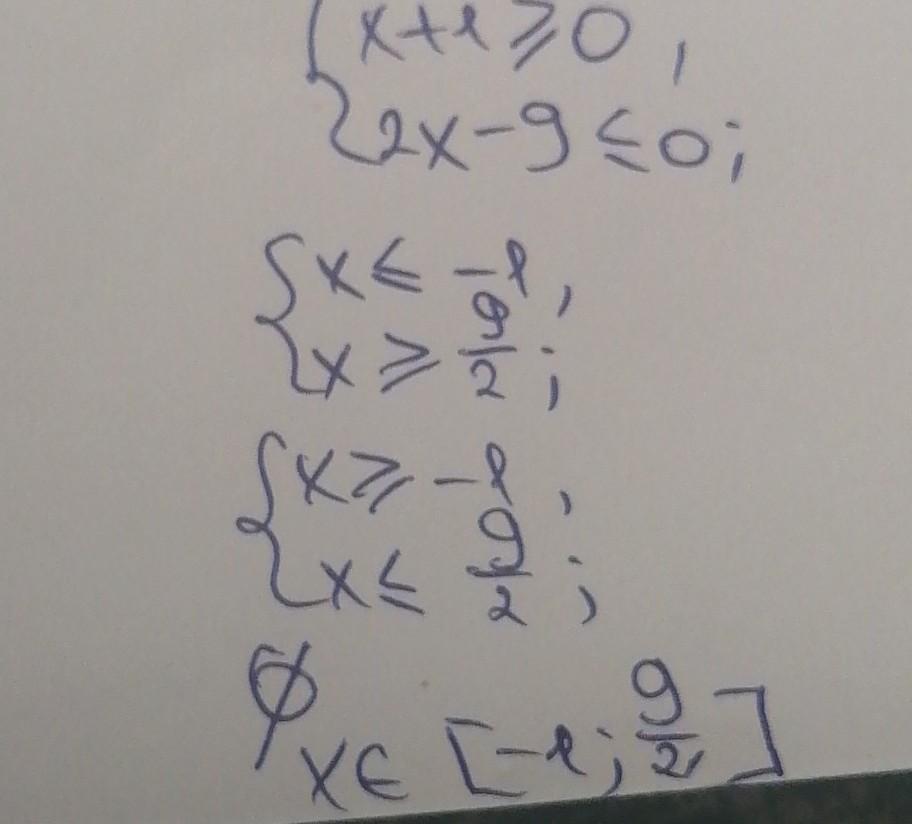 {x+1⩾0,
{2x-9≤0;
{x≤-1,
{x⩾9/2;
{x⩾-1,
{x≤9/2;
∅
x∈[-1;9/2]